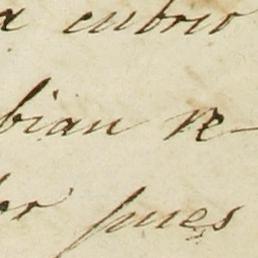 a cubrio
bian re-
or pues